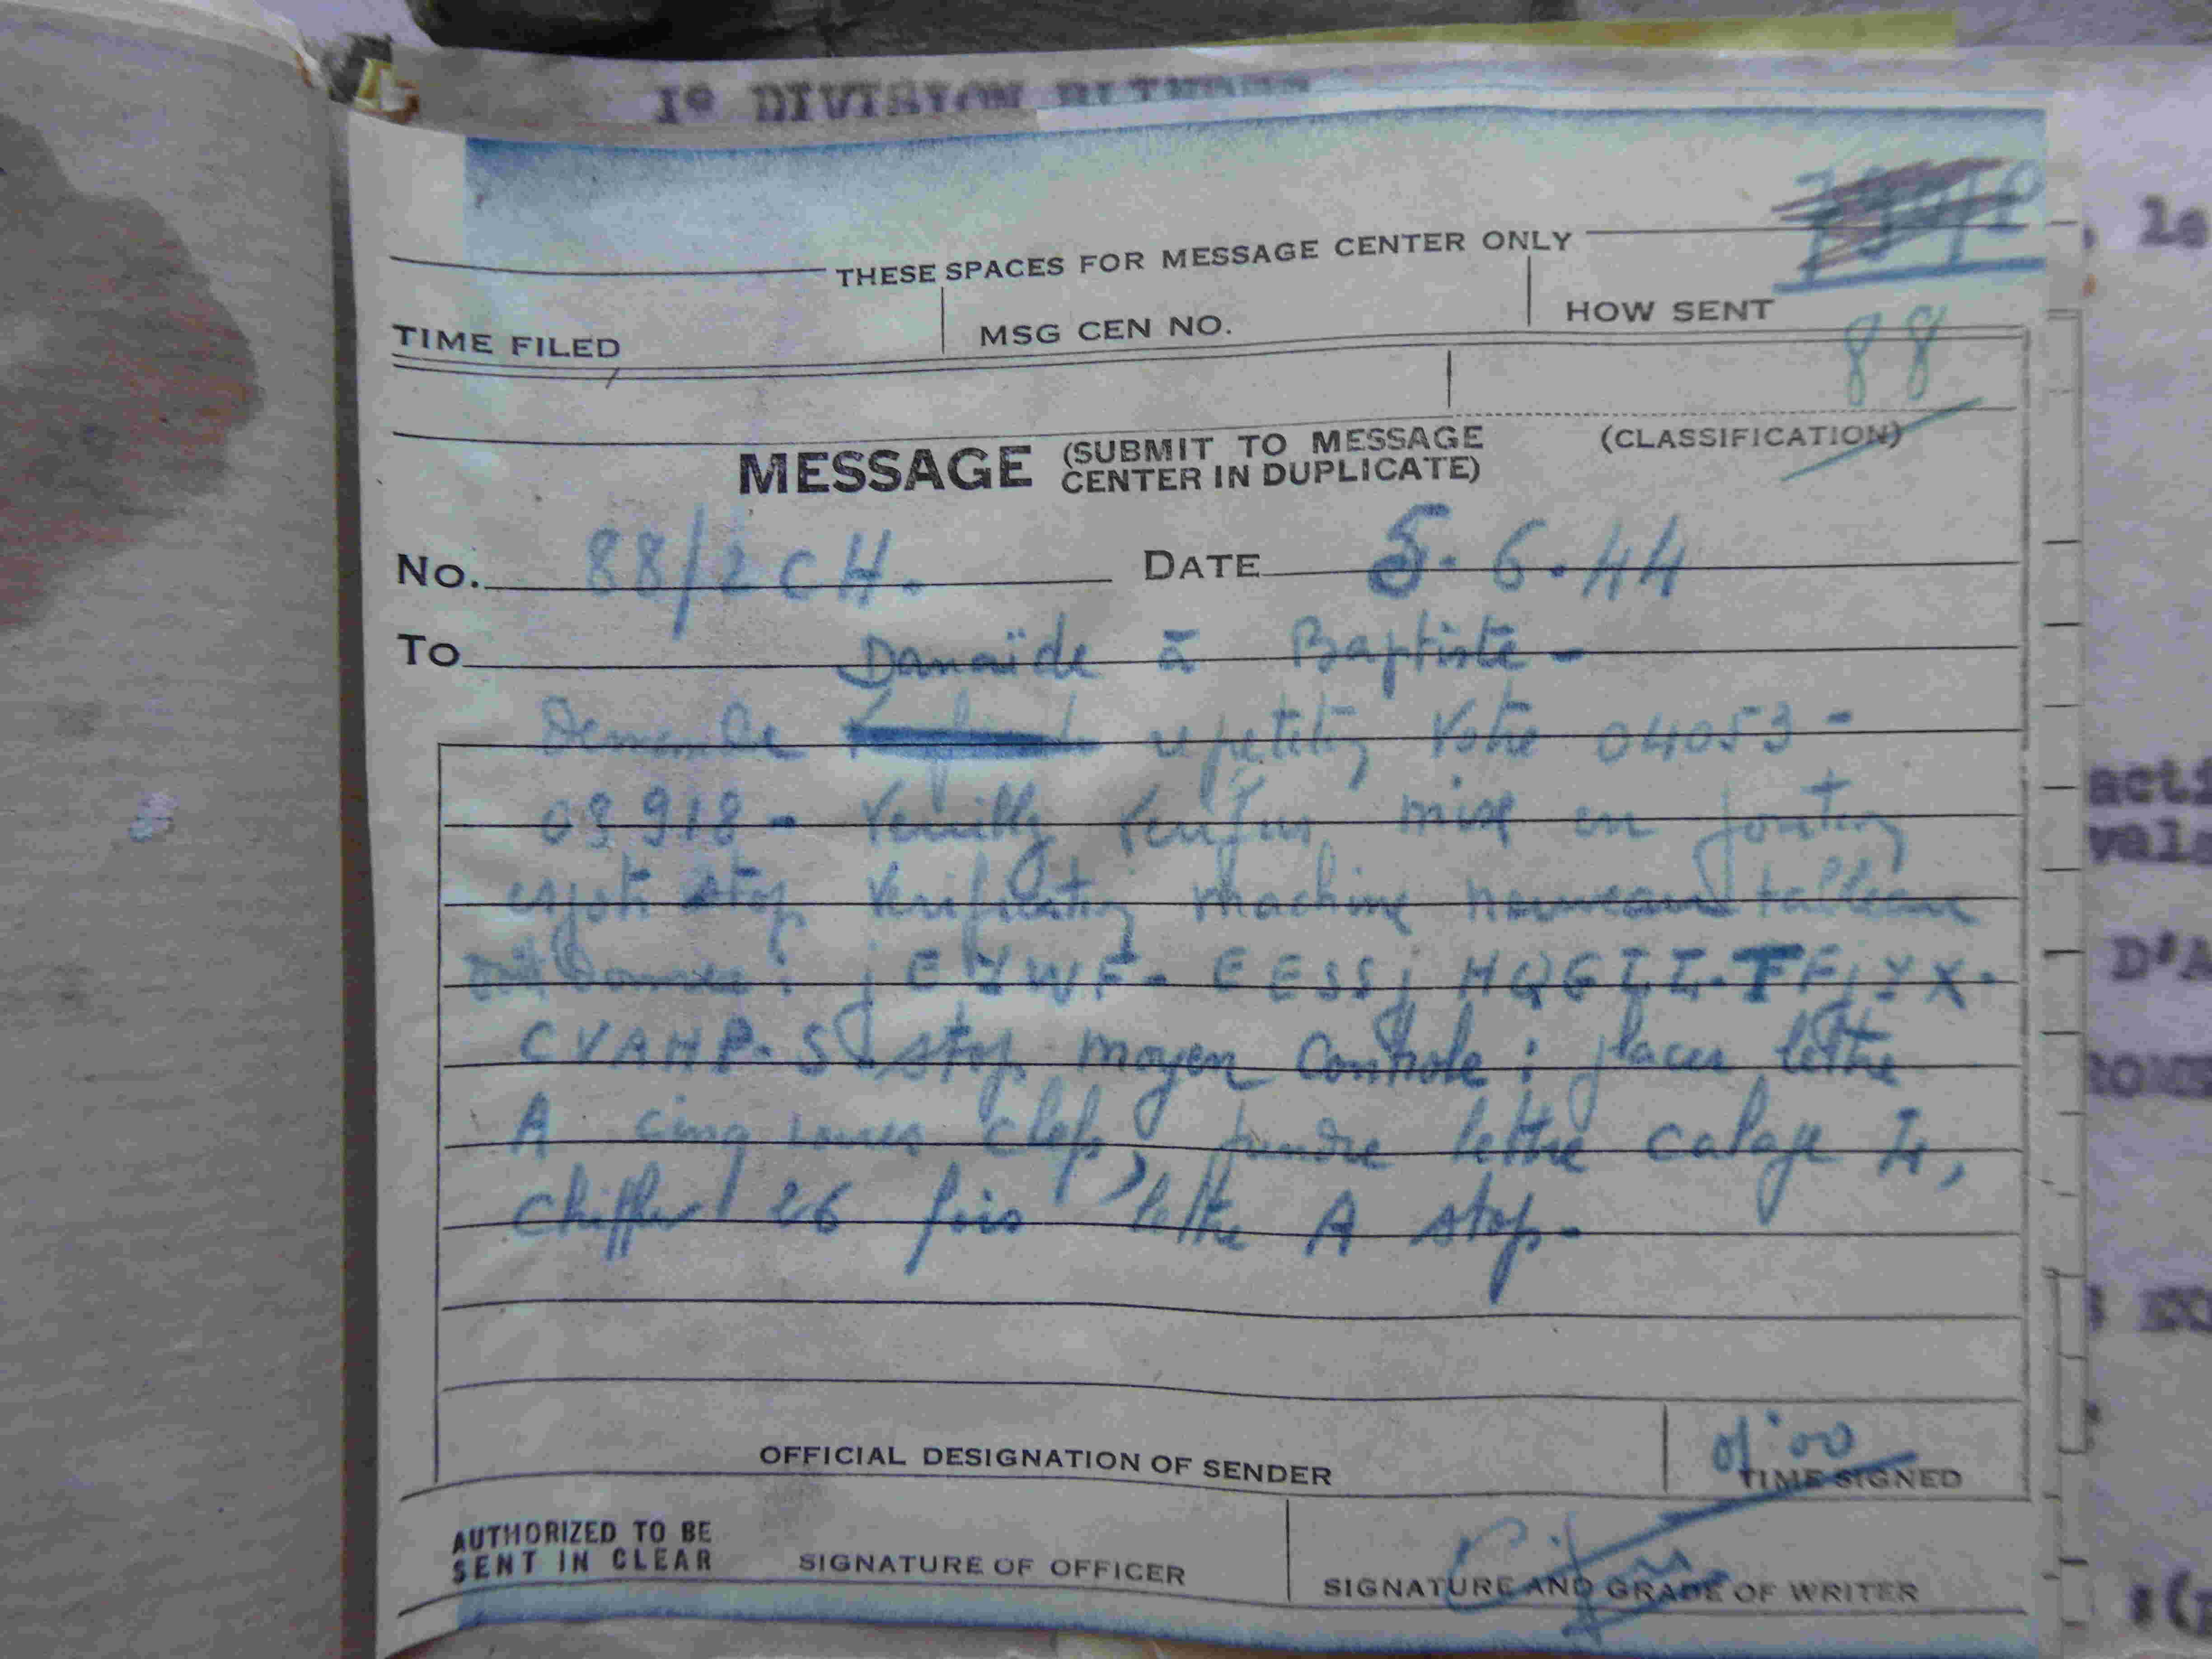 1º DIVISION BLINDEE
, le
THESE SPACES FOR MESSAGE CENTER ONLY
TIME FILED MSG CEN NO. HOW SENT
88
MESSAGE (SUBMIT TO MESSAGE CENTER IN DUPLICATE) (CLASSIFICATION)
No. 88/2 CH. DATE 5.6.44
To Danaïde à Baptiste -
Demande repetition Votre 04053 -
09918 - Veuillez mise en
stop Verification machine nouveau tableau
: j E Y W F - E E S S j H Q G I I - T F j Y X -
C V A H P - S J stop moyen Controle : placer lettre
A cinq roues clefs, prendre lettre calage I,
Chiffrer 26 fois lettre A stop -
OFFICIAL DESIGNATION OF SENDER TIME SIGNED
AUTHORIZED TO BE SENT IN CLEAR SIGNATURE OF OFFICER SIGNATURE AND GRADE OF WRITER
acti
vals
D'A